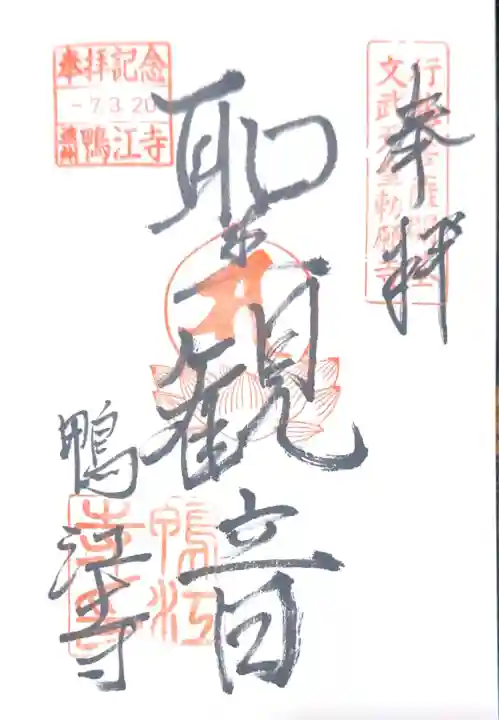 奉拝
行基菩薩開基
文武天皇勅願寺
聖観音
奉拝記念
-7.3.20
遠州 鴨江寺
鴨江寺
鴨江
寺